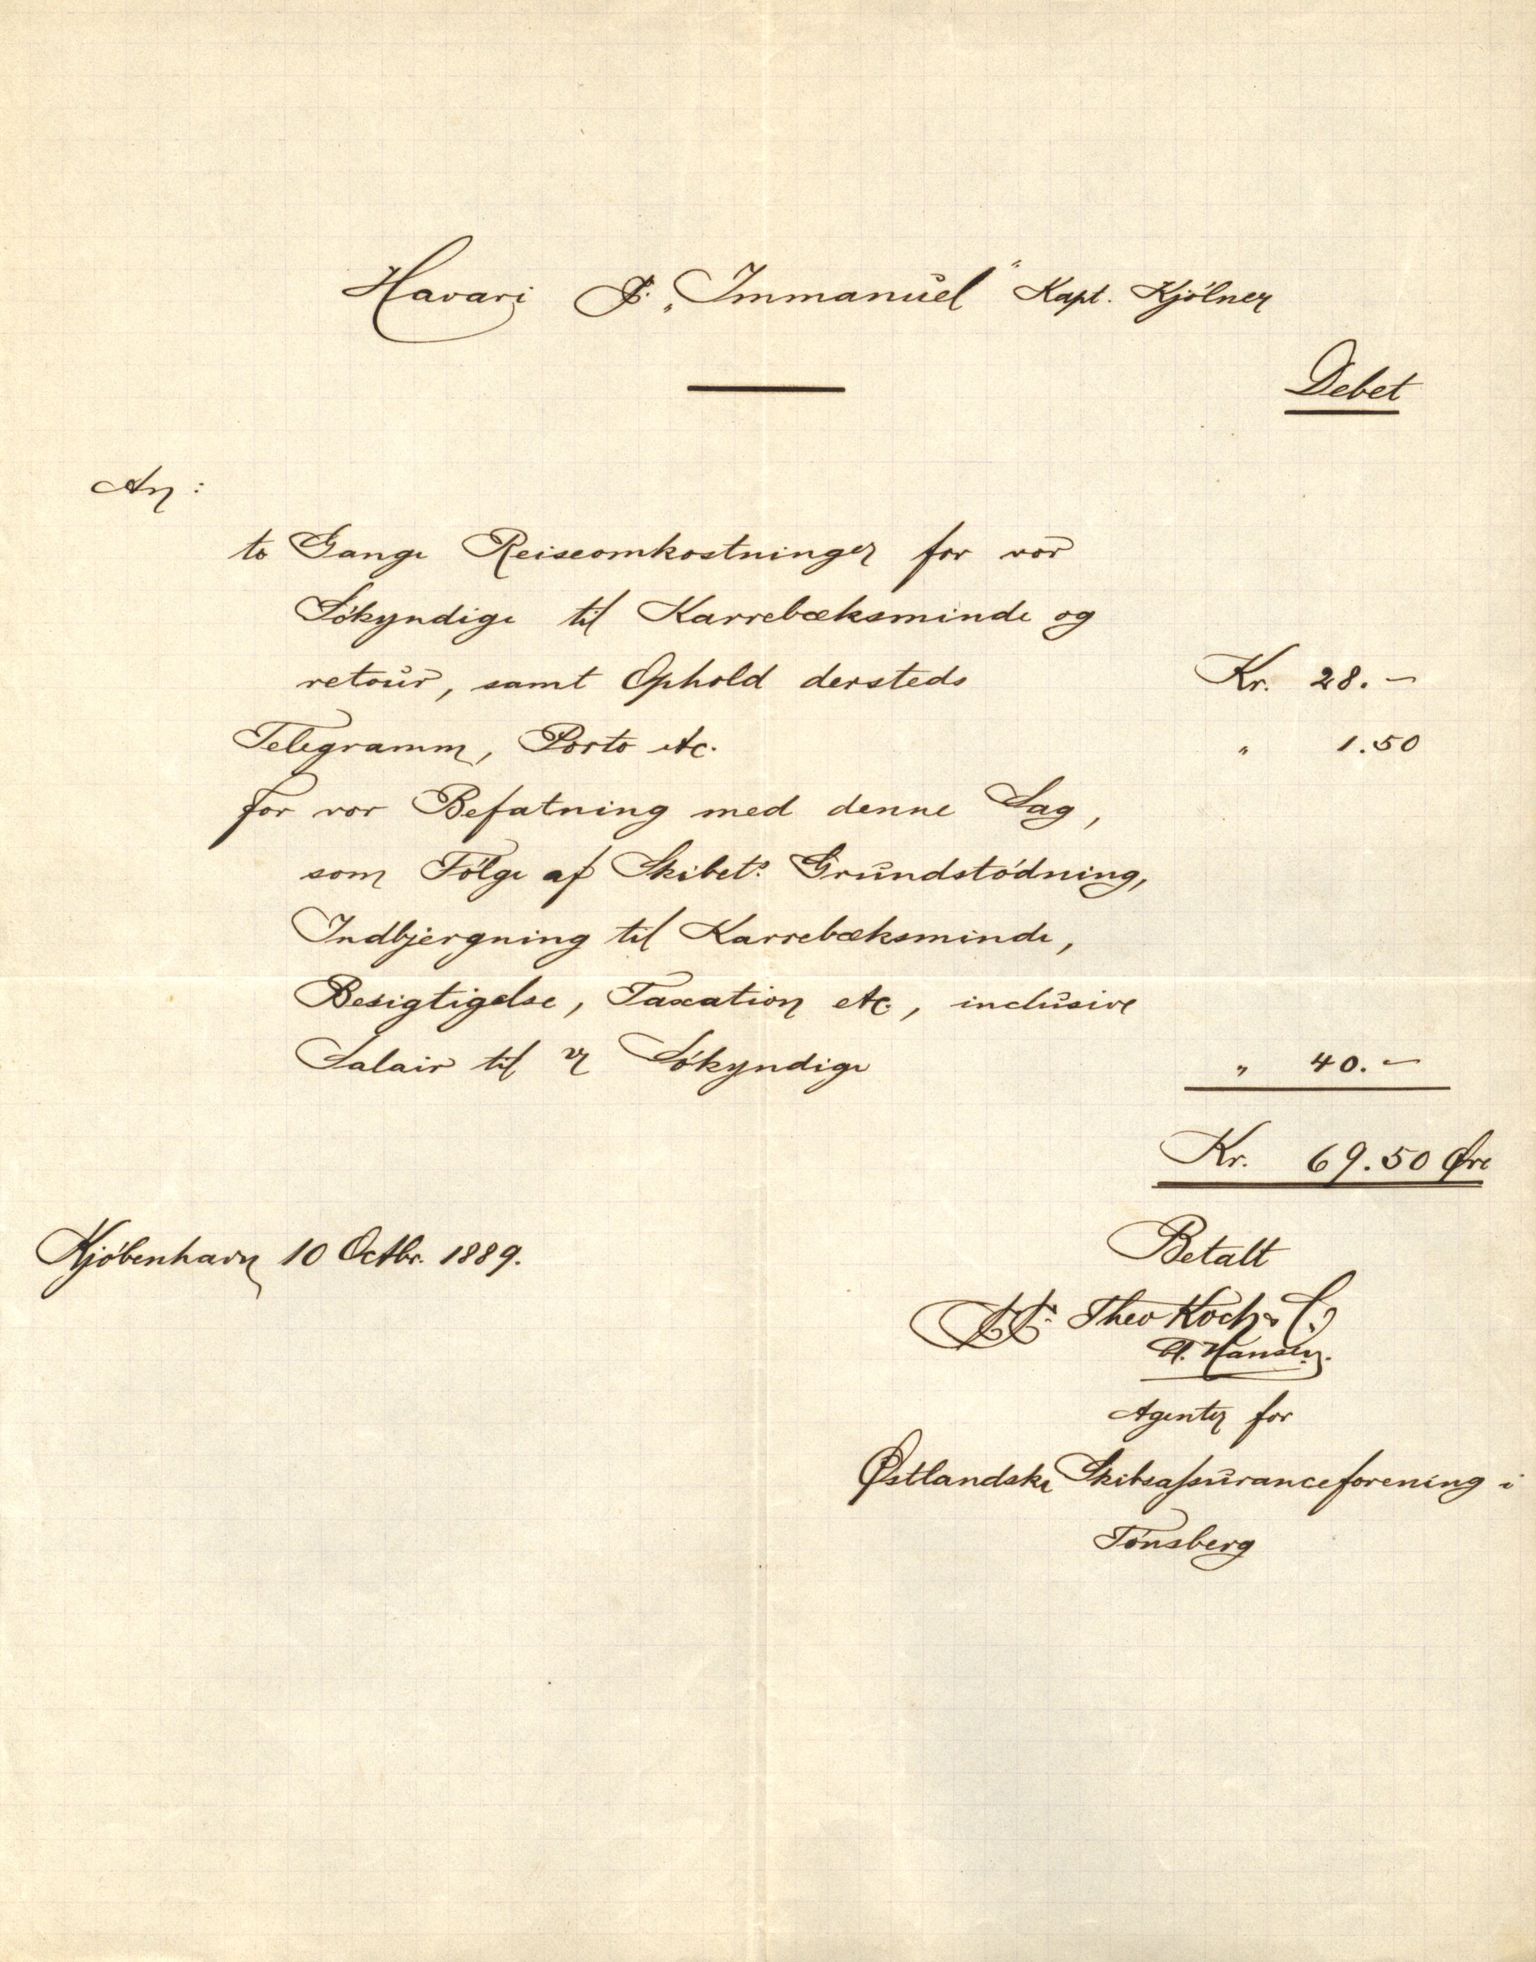 Havari S. „Immanuel" Kapt. Kjölner
Debet
An:
to Gange Reiseomkostninger for vor
Sökyndige til Karrebæksminde og
retour, samt Ophold dersteds Kr. 28.—
Telegramm, Porto etc. " 1.50
for vor Befatning med denne Sag,
som Fölge af Skibets Grundstödning,
Indbjergning til Karrebæksminde,
Besigtigelse, Taxation etc., inclusive
Salair til Sökyndige " 40.—
Kr. 69.50 Øre
Kjöbenhavn 10 Octbr. 1889.
Betalt
Theo Koch & C.
Hansen.
Agenter for
Østlandske Skibsassuranceforening i
Tönsberg